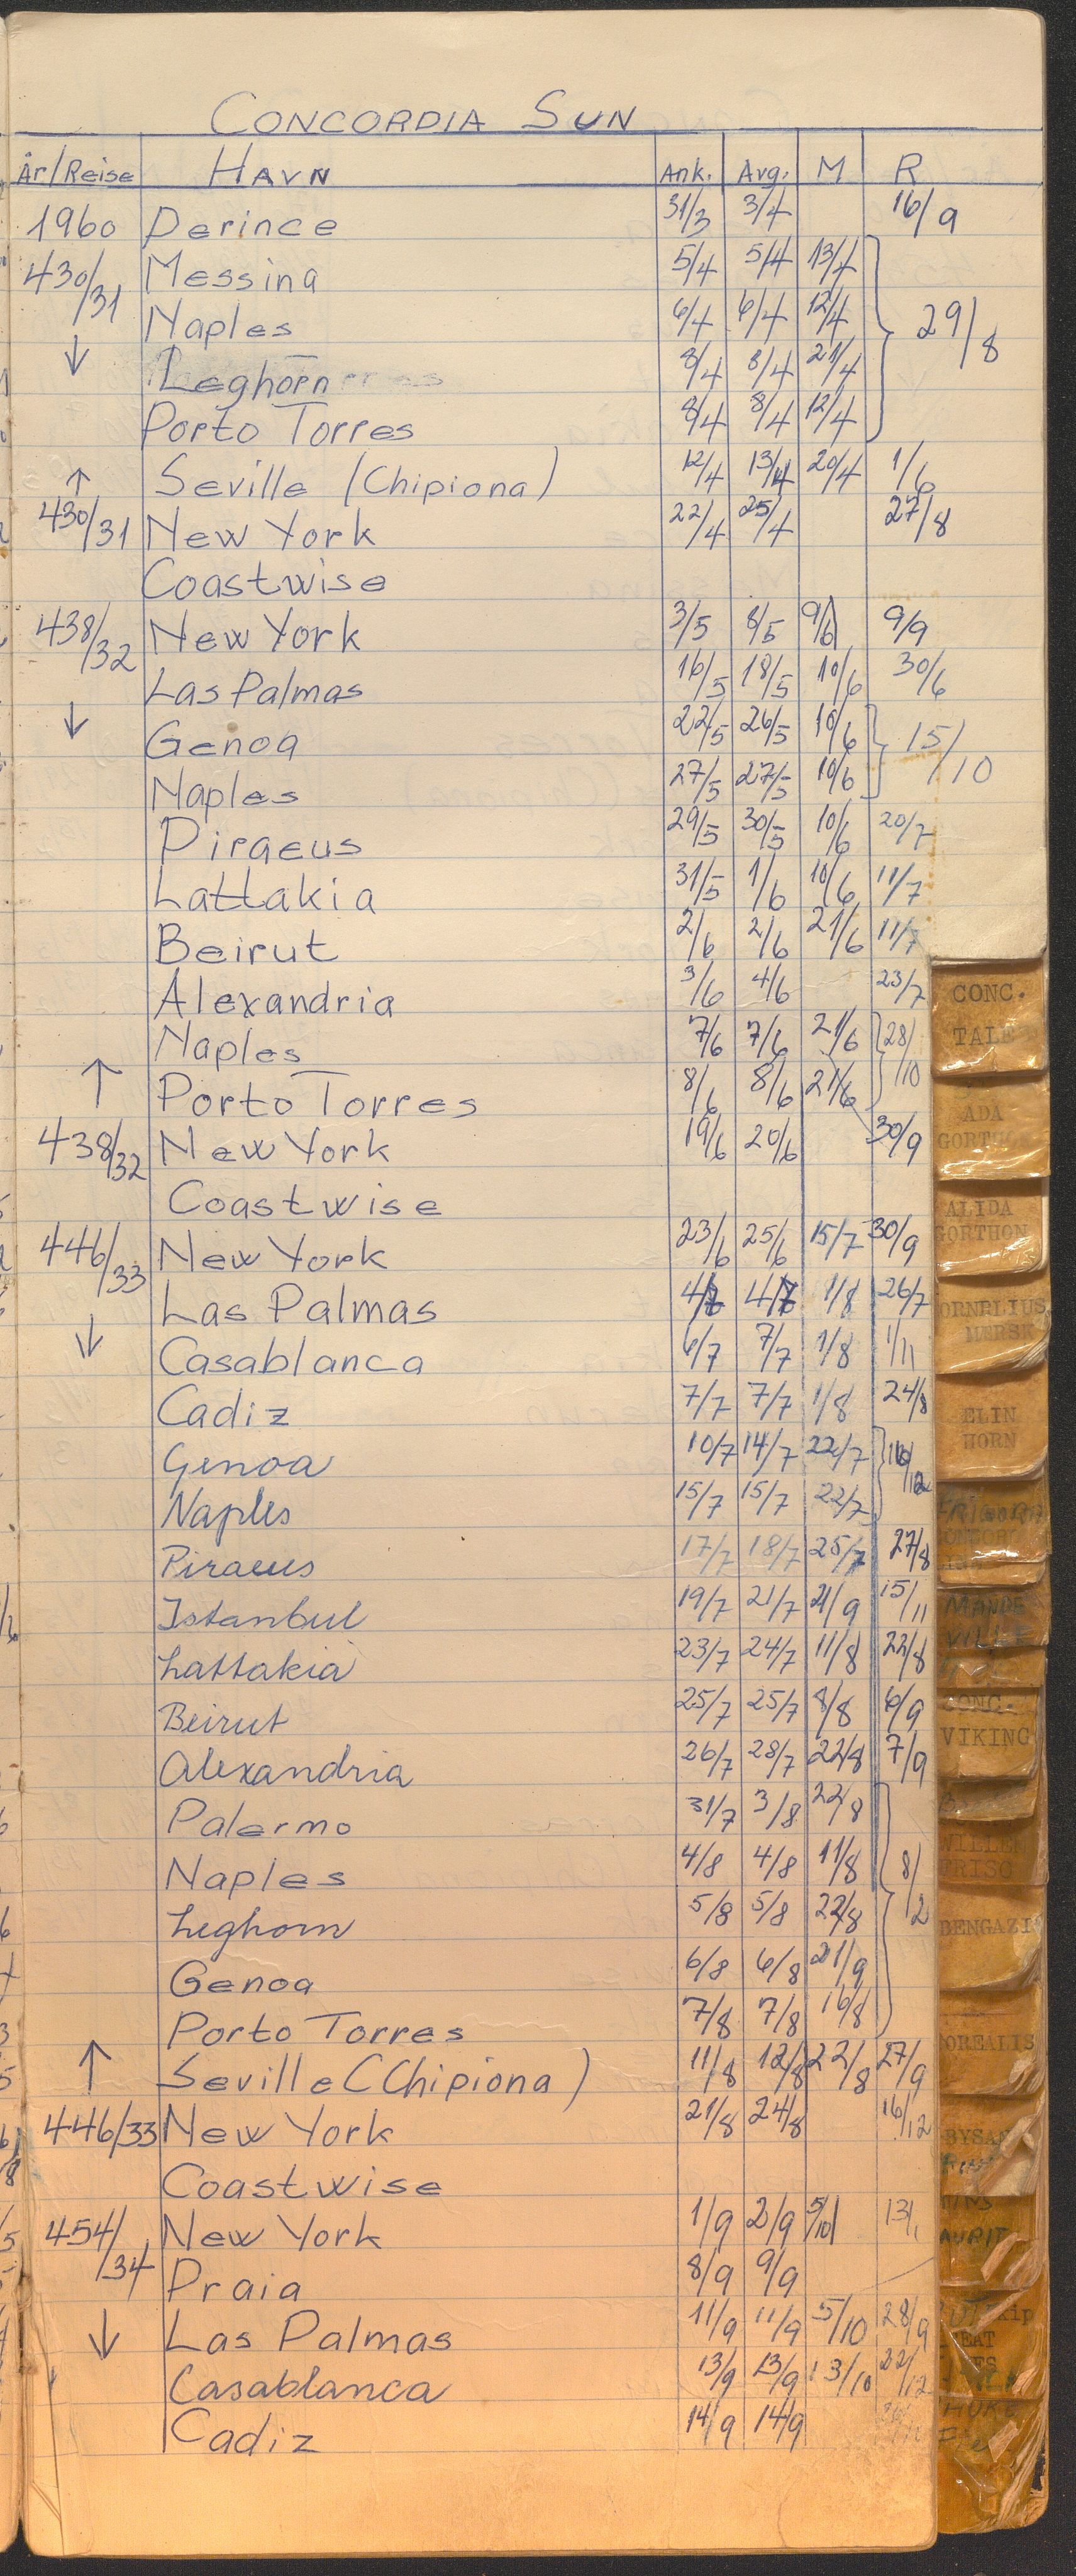 CONCORDIA SUN
År/Reise HAVN Ank. Avg. M R
1960 Derince 31/3 3/4 16/9
430/31 Messina 5/4 5/4 13/4
Naples 6/4 6/4 12/4 29/8
↓ Leghorn 8/4 8/4 21/4
Porto Torres 8/4 8/4 12/4
↑ Seville (Chipiona) 12/4 13/4 20/4 1/6
430/31 New York 22/4 25/4 27/8
Coastwise
438/32 New York 3/5 8/5 9/6 9/9
Las Palmas 16/5 18/5 10/6 30/6
↓ Genoa 22/5 26/5 10/6 15/10
Naples 27/5 27/5 10/6
Piraeus 29/5 30/5 10/6 20/7
Lattakia 31/5 1/6 10/6 11/7
Beirut 2/6 2/6 21/6 11/7
Alexandria 3/6 4/6 23/7
Naples 7/6 7/6 21/6 28/10
↑ Porto Torres 8/6 8/6 21/6
438/32 New York 19/6 20/6 30/9
Coastwise
446/33 New York 23/6 25/6 15/7 30/9
Las Palmas 4/7 4/7 1/8 26/7
↓ Casablanca 6/7 7/7 1/8 1/11
Cadiz 7/7 7/7 1/8 24/8
Genoa 10/7 14/7 22/7 16/12
Naples 15/7 15/7 22/7
Piraeus 17/7 18/7 25/7 27/8
Istanbul 19/7 21/7 21/9 15/11
Lattakia 23/7 24/7 11/8 22/8
Beirut 25/7 25/7 8/8 6/9
Alexandria 26/7 28/7 22/8 7/9
Palermo 31/7 3/8 22/8
Naples 4/8 4/8 11/8 8/12
Leghorn 5/8 5/8 22/8
Genoa 6/8 6/8 21/9
Porto Torres 7/8 7/8 16/8
↑ Seville (Chipiona) 11/8 12/8 22/8 27/9
446/33 New York 21/8 24/8 16/12
Coastwise
454/34 New York 1/9 2/9 5/10 13/1
Praia 8/9 9/9
↓ Las Palmas 11/9 11/9 5/10 28/9
Casablanca 13/9 13/9 13/10 22/12
Cadiz 14/9 14/9
CONC.
TALE
ADA
ALIDA
GORTHON
ORNELIUS
MERSK
ELIN
HORN
MANDE
VILLE
CONC.
VIKING
BENGAZI
OREALIS
BYSAN